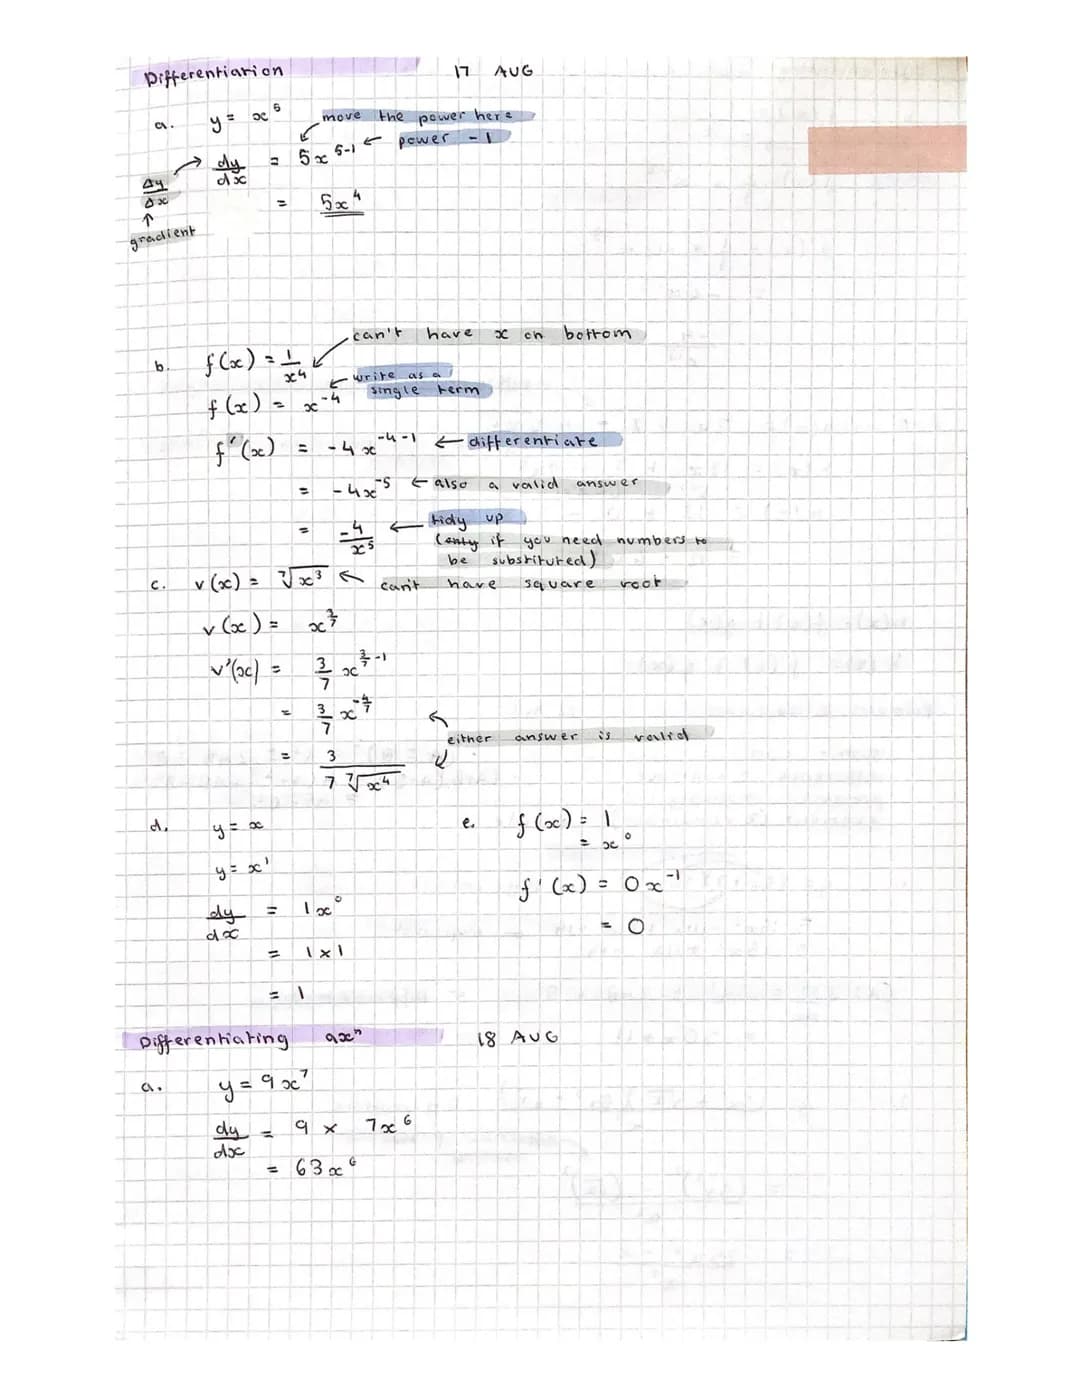 Differentiation 17 AUG
a. y = x⁵
move the power here
dy/dx = 5x⁵⁻¹ ← power - 1
Δy/Δx
= 5x⁴
↑
gradient
can't have x on bottom
b. f(x) = 1/x⁴
write as a
f(x) = x⁻⁴ single term
f'(x) = -4x⁻⁴⁻¹ ← differentiate
= -4x⁻⁵ ← also a valid answer
= -4/x⁵ ← tidy up
(only if you need numbers to
be substituted)
c. v(x) = ⁷√x³ can't have square root
v(x) = x^(3/7)
v'(x) = 3/7 x^(3/7 - 1)
= 3/7 x^(-4/7)
either answer is valid
= 3/(7 ⁷√x⁴)
d. y = x
y = x¹
dy/dx = 1x⁰
= 1 × 1
= 1
e. f(x) = 1
= x⁰
f'(x) = 0x⁻¹
= 0
Differentiating axⁿ 18 AUG
a. y = 9x⁷
dy/dx = 9 × 7x⁶
= 63x⁶